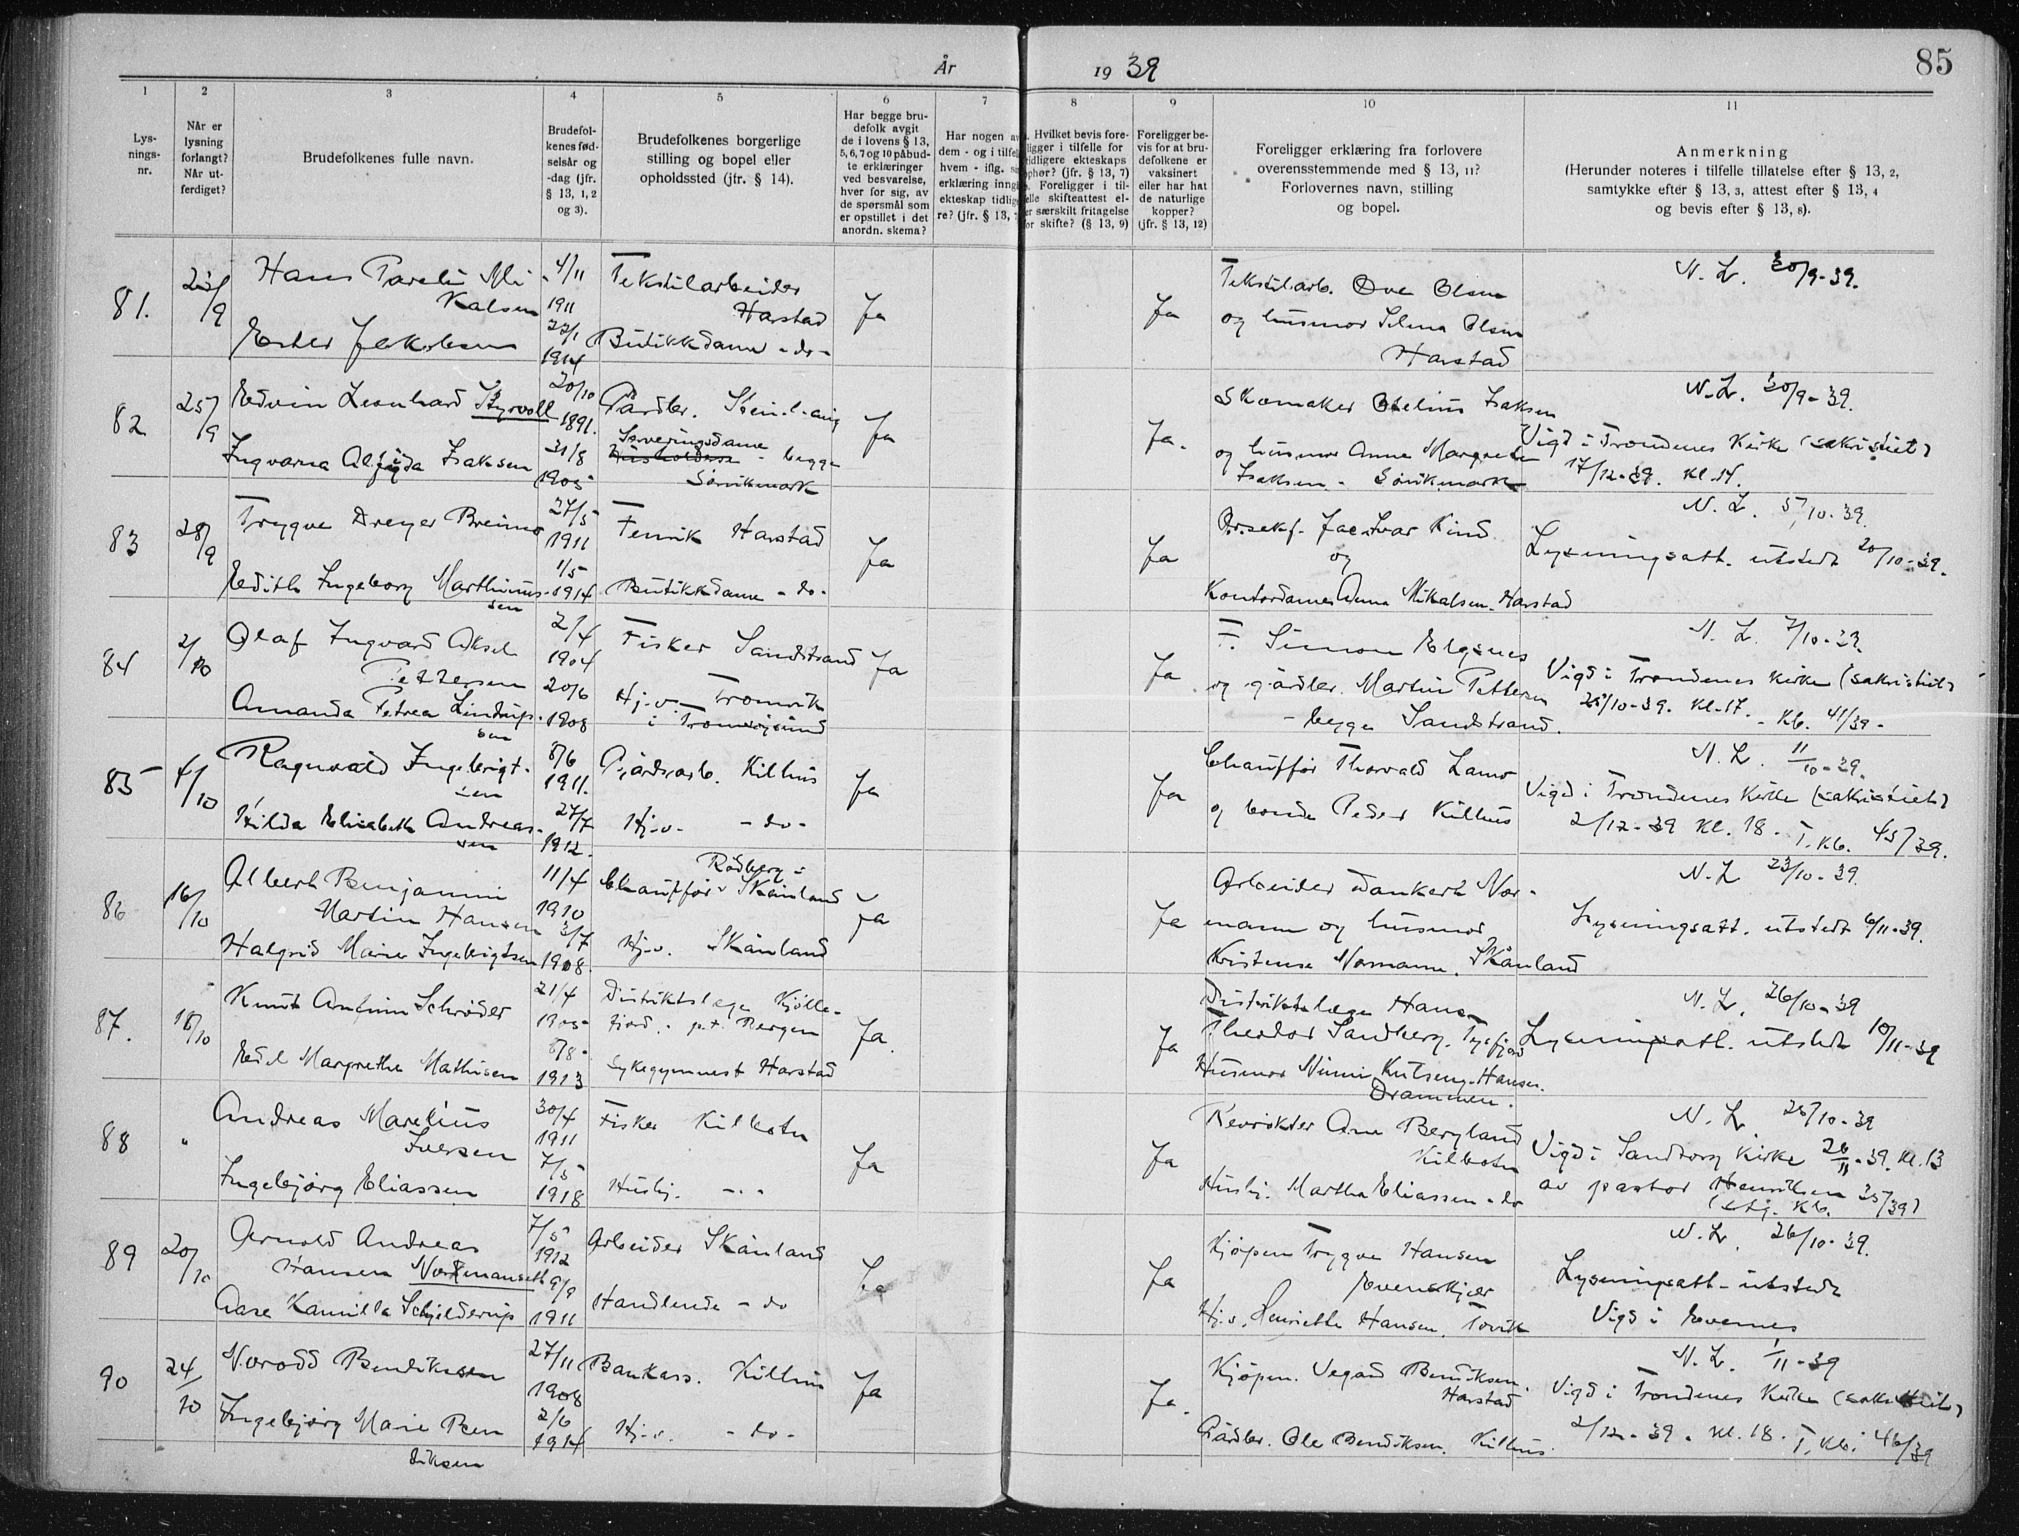 År 1939
85
1 2 3 4 5 6 7 8 9 10 11
Lys-
nings-
nr.
Når er
lysning
forlangt?
Når ut-
ferdiget?
Brudefolkenes fulle navn.
Brudefol-
kenes fød-
selsår og
-dag (jfr.
§ 13, 1, 2
og 3).
Brudefolkenes borgerlige
stilling og bopel eller
opholdssted (jfr. § 14).
Har begge bru-
defolk avgit
de i lovens § 13,
5, 6, 7 og 10 påbud-
te erklæringer
ved besvarelse,
hver for sig, av
de spørsmål som
er opstillet i det
anordn. skema?
Har nogen av
dem - og i tilfel
hvem - iflg.
erklæring inngå
ekteskap tidlige
re? (jfr. § 13,
Hvilket bevis fore-
ligger i tilfelle for
tidligere ekteskaps
ophør? (jfr. § 13, 7)
Foreligger i til-
felle skifteattest el-
er særskilt fritagelse
or skifte? (§ 13, 9)
Foreligger be-
vis for at bru-
defolkene er
vaksinert
eller har hat
de naturlige
kopper?
(jfr. § 13, 12)
Foreligger erklæring fra forlovere
overensstemmende med § 13, 11?
Forlovernes navn, stilling
og bopel.
Anmerkning
(Herunder noteres i tilfelle tillatelse efter § 13, 2,
samtykke efter § 13, 3, attest efter § 13, 4
og bevis efter § 13, 8).
81. 23/9
Hans Pareli Mi
kalsen
4/11
1911
Tekstilarbeider
Harstad
Ja
Ja
Tekstilarb. Ove Olsen
og husmor Selma Olsen
Harstad
N. L. 30/9-39.
Ester Jakobsen
22/1
1914
Butikkdame - do -
82 25/9
Edvin Leonhard Styrvoll
20/10
1891.
Gårdbr.
Ja
Ja.
Skomaker Otelius Isaksen
og husmor Anna Margrete
Isaksen - Sørvikmark
N. L. 30/9-39.
Vigd i Trondenes Kirke (sakristiet)
17/12-39. Kl. 14.
Ingvarna Alfida Isaksen
31/8
1905
Serveringsdame
- begge
Sørvikmark
83 28/9
Trygve Dreyer Breimo
27/5
1911
Fenrik Harstad
Ja
Ja
og
Kontordame Anna Mikalsen. Harstad
N. L. 5/10-39.
Lysningsatt. utstedt 20/10-39.
Edith Ingeborg Marthinus-
sen
1/5
1914
Butikkdame - do -
84 2/10
Olaf Ingvard Aksel
Pettersen
2/4
1904
Fisker Sandstrand
Ja
Ja
F. Simon Elgsnes
og gårdbr. Martin Pettersen
- begge Sandstrand.
N. L. 7/10-39
Vigd i Trondenes Kirke (sakristiet)
28/10-39. Kl. 17. - Kb. 41/39-
Amanda Petrea Lindrup-
sen
20/6
1908
Hj.v. Tromvik
i Tromsøysund
85 4/10
Ragnvald Ingebrigt-
sen
8/6
1911.
Gårdsarb. Kilhus
Ja
Ja
Chauffør Thorvald Lamo
og bonde Peder Kilhus
N. L. 11/10-39.
Vigd i Trondenes Kirke (sakristiet)
2/12-39 Kl. 18. T. Kb. 45/39.
Hilda Elisabeth Andreas-
sen
27/7
1912.
Hj.v. - do -
86 16/10
Albert Benjamin
Martin Hansen
11/4
1910
Rødberg i
Chauffør Skånland
Ja
Ja
Arbeider Dankert Nor-
mann og husmor
Kristense Normann. Skånland
N. L 23/10-39.
Lysningsatt. utstedt 6/11-39.
Halgrid Marie Ingebrigtsen
3/7
1908.
Hj.v. Skånland
87. 18/10
Knut Anshelm Schrøder
21/4
1905
Distriktslege Kjølle-
fjord - p.t. Bergen
Ja.
Ja
Distriktslege Hans
Theodor Sandberg. Tysfjord
Drammen.
N. L. 26/10-39
Lysningsatt. utstedt 10/11-39
Edel Margrethe Mathisen
8/8-
1913
Sykegymnast Harstad
88 "
Andreas Marelius
Iversen
30/4
1911
Fisker Kilbotn
Ja
Ja
Revrøkter Arne Bergland
Kilbotn
Husbj. Martha Eliassen - do
N. L. 26/10-39
Vigd i Sandtorg Kirke 26/11-39. Kl. 13
av pastor Henriksen
(Stg. Kb. 35/39)
Ingebjørg Eliassen
7/5
1918
Husbj. - " -
89 20/10
Arnold Andreas
Hansen Normanseth
7/5
1912
Arbeider Skånland
Ja
Ja
Kjøpm Trygve Hansen
Evenskjær
Hj.v. Henriette Hansen. Tovik
N. L. 26/10-39.
Lysningsatt. utstedt
Vigd i Evenes
Aase Kamilla Schjelderup
9/9
1911
Handlende - do
90 24/10
Norodd Bendiksen
27/11
1908
Bankass. Kilhus
Ja
Ja.
Kjøpm. Vegard Bendiksen.
Harstad
Gårdbr. Ole Bendiksen. Kilhus.
N. L. 1/11-39
Vigd i Trondenes Kirke (sakristiet)
2/12-39. Kl. 18. T. Kb. 46/39
Ingebjørg Marie Ben
diksen
2/6
1914
Hj.v. - do -